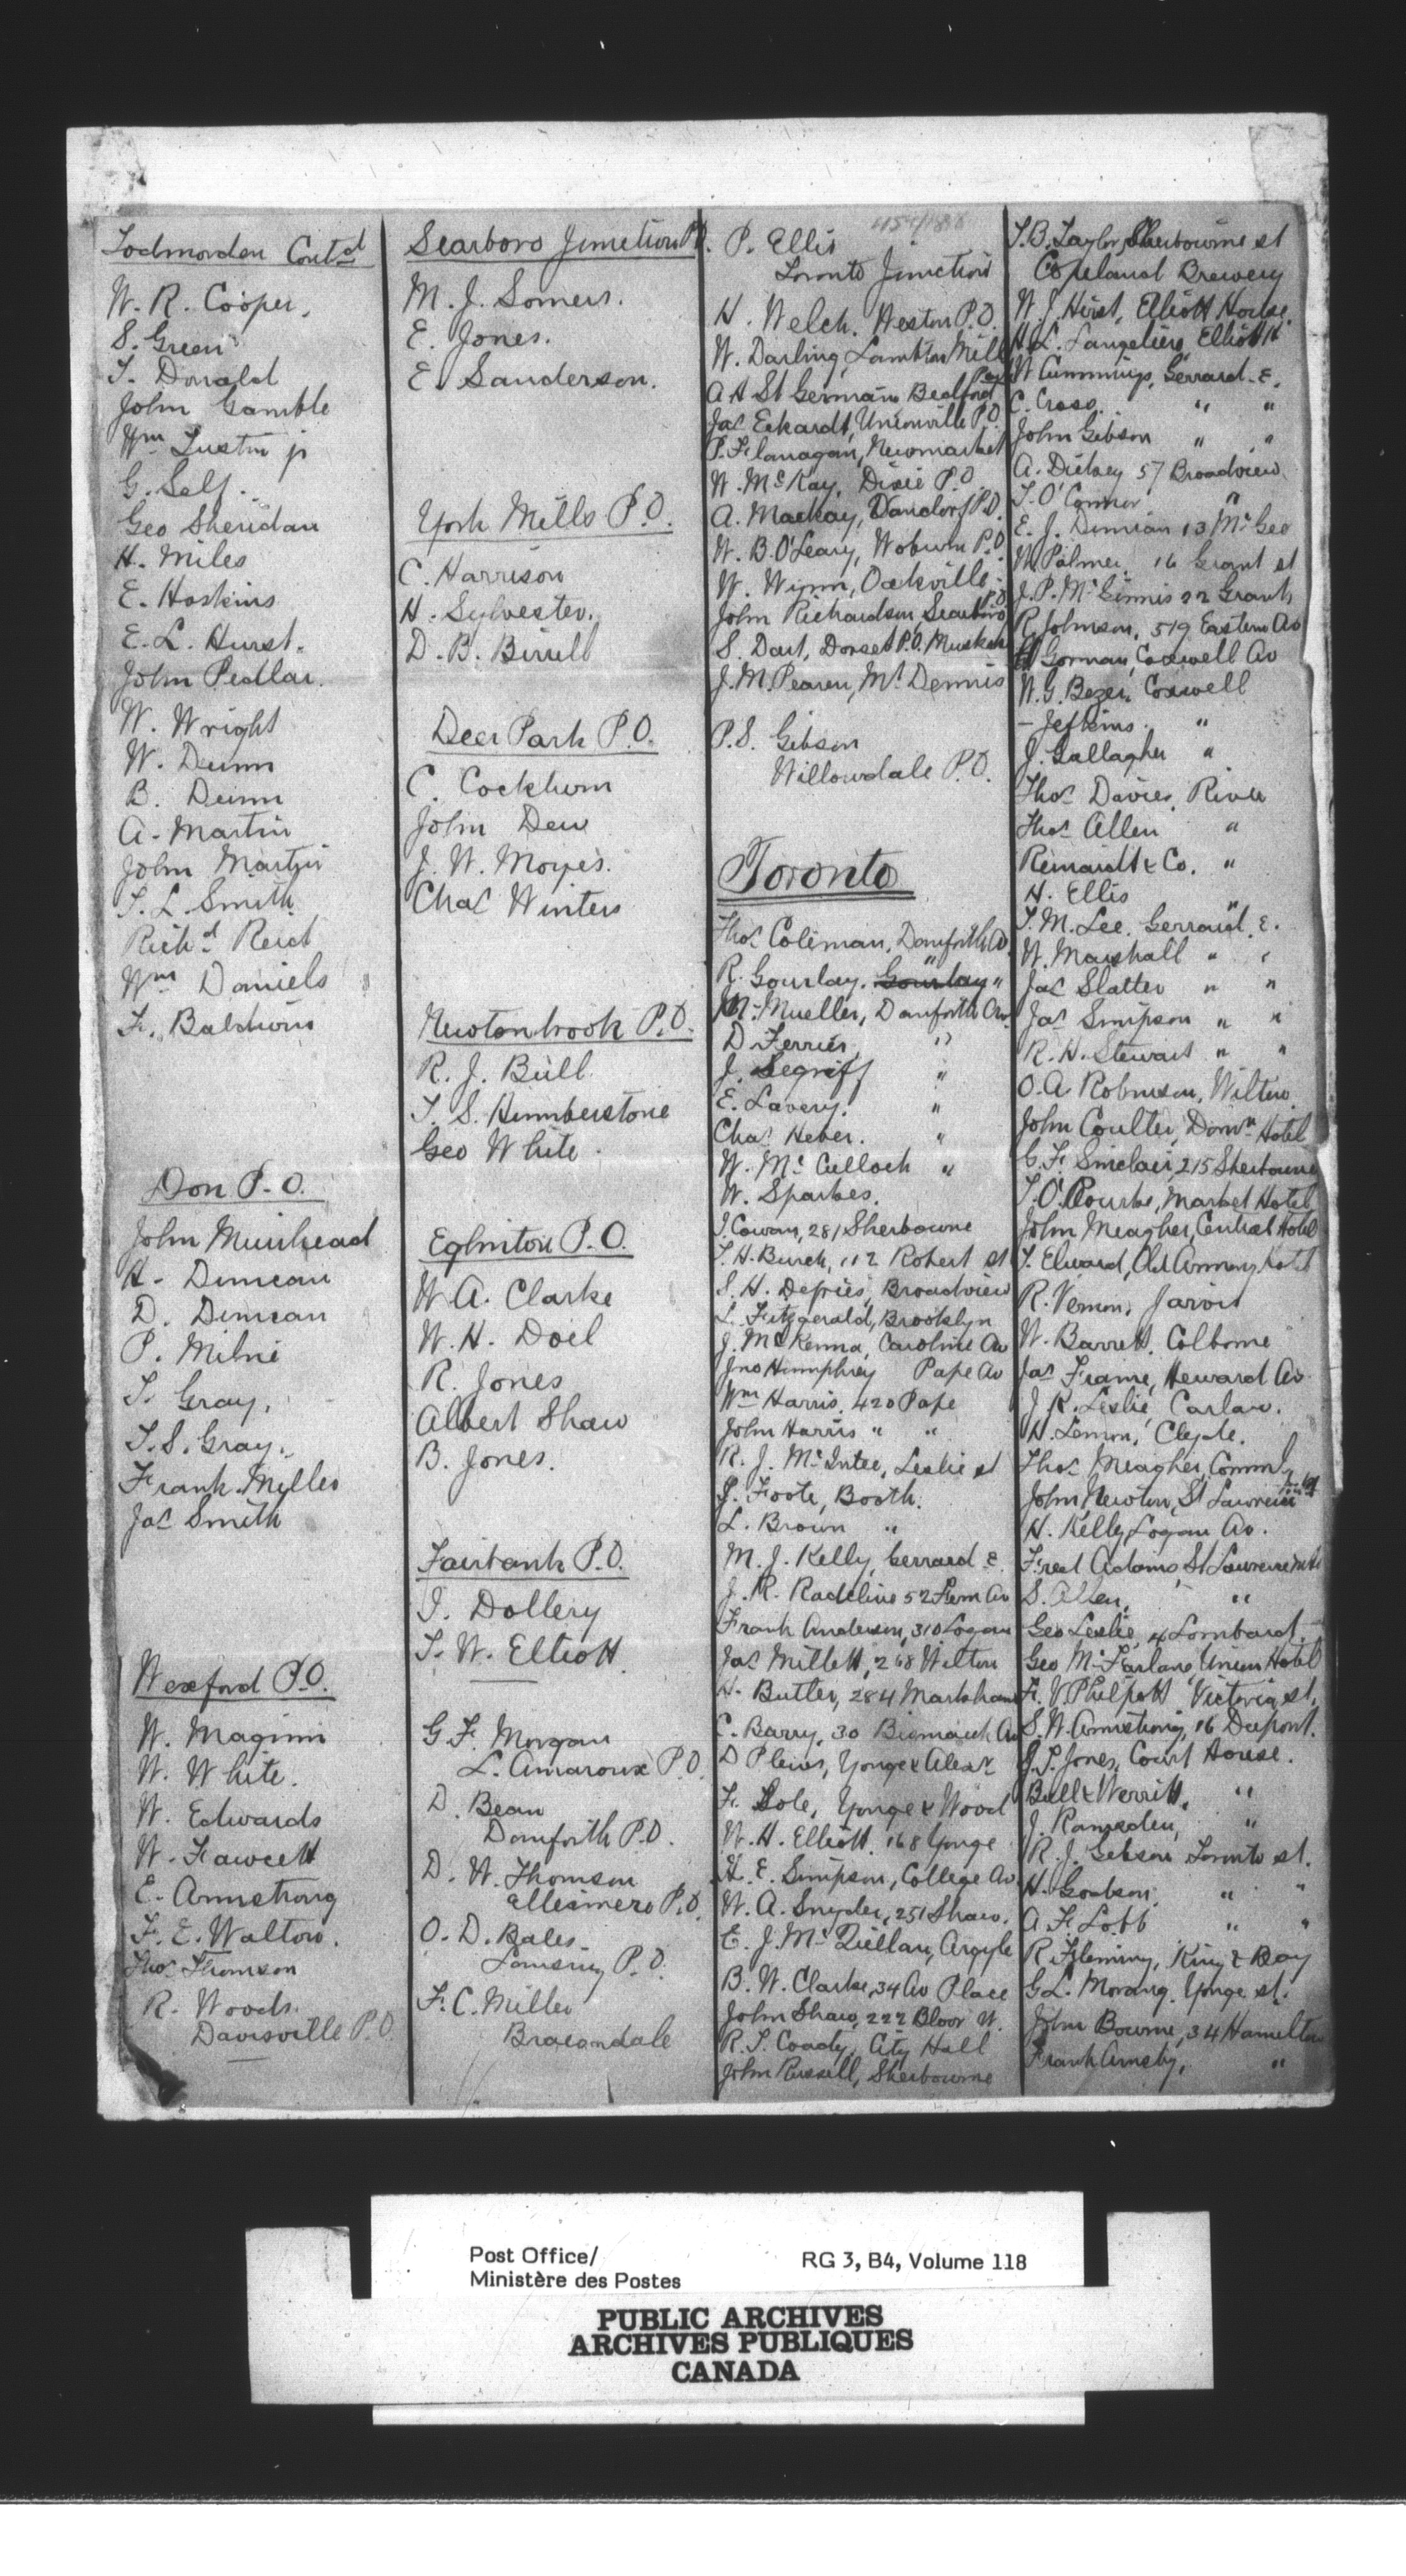 Todmorden Contd
W. R. Cooper.
S. Green
T. Donald
John Gamble
Wm Lustin jr
G. Self.
Geo Sheridan
H. Miles
E. Hoskins
E. L. Hurst.
John Pedlar.
W. Wright
W. Dunn
B. Dunn
A. Martin
John Martin
T. L. Smith
Richd Reid
Wm Daniels
F. Baldwin
Don P.O.
John Muirhead
H. Duncan
D. Duncan
P. Milne
T. Gray.
T. S. Gray.
Frank Miller
Jas Smith
Wexford P.O.
W. Maginn
W. White.
W. Edwards
W. Fawcett
E. Armstrong
F. E. Walton.
Thos Thomson
R. Woods.
Davisville P.O.
Scarboro Junction P.O.
M. J. Somers.
E. Jones.
E. Sanderson.
York Mills P.O.
C. Harrison
H. Sylvester.
D. B. Birrell
Deer Park P.O.
C. Cockburn
John Dew
J. W. Moyes.
Chas Winters
Newtonbrook P.O.
R. J. Bull
T. S. Humberstone
Geo White.
Eglinton P.O.
W. A. Clarke
W. H. Doel
R. Jones
Albert Shaw
B. Jones.
Fairbank P.O.
J. Dollery
T. W. Elliott
G. F. Morgan
L. Amaroux P.O.
D. Bean
Danforth P.O.
D. W. Thomson
Ellesmere P.O.
O. D. Bales.
Lansing P.O.
F. C. Miller
Bracondale
1154/1888
P. Ellis
Toronto Junction
H. Welch. Weston P.O.
W. Darling, Lambton Mills
A H St Germain Bedford Park
Jas Eckardt, Unionville P.O.
P. Flanagan, Newmarket
W. McKay, Dixie P.O.
A. Mackay, Vandorf P.O.
W. B. O'Leary, Woburn P.O.
W. Wynn, Oakville
John Richardson, Scarboro P.O.
S. Dart, Dorset P.O. Muskoka
J. M. Pearen, Mt Dennis
P. S. Gibson
Willowdale P.O.
Toronto
Thos Coleman, Danforth Av
R. Gourlay. Gourlay "
Mueller, Danforth Av.
D Ferrier, "
J. Segriff "
E. Lavery. "
Chas Heber. "
W. McCulloch "
W. Sparkes.
J. Cowan, 281 Sherbourne
T. H. Burch, 112 Robert st
S. H. Defries, Broadview
L. Fitzgerald, Brooklyn
J. McKenna, Caroline Av
Jno Humphrey Pape Av
Wm Harris, 420 Pape
John Harris " "
R. J. McIntee, Leslie st
J. Foote, Booth.
L. Brown "
M. J. Kelly, Gerrard E.
J. R. Radcline 52 Fern Av
Frank Anderson, 310 Logan
Jas Millett, 268 Wilton
H. Butler, 284 Markham
C. Barry, 30 Bismarck Av
D Plews, Yonge & Alexr
F. Sole, Yonge & Wood
W. H. Elliott, 168 Yonge
H. E. Simpson, College Av
W. A. Snyder, 251 Shaw.
E. J. McQuillan, Argyle
B. W. Clarke, 34 Av Place
John Shaw, 222 Bloor W.
R. T. Coady, City Hall
John Russell, Sherbourne
T. B. Taylor, Sherbourne st
Copeland Brewery
W. J. Hirst, Elliott House.
H. L. Langeliere, Elliott H
W Cummings, Gerrard E.
C. Cross. " "
John Gibson " "
A. Dickey 57 Broadview
T. O'Connor "
E. J. Dunran 13 McGee
W Palmer, 16 Grant st
J. P. McGinnis 22 Grant
R. Johnson, 519 Eastern Av
Gorman, Coxwell Av
W. G. Bezer, Coxwell
- Jeffkins. "
J. Gallagher "
Thos Davies River
Thos Allen "
Reinardt & Co. "
H. Ellis "
T. M. Lee, Gerrard E.
W. Marshall " "
Jas Slatter " "
Jas Simpson " "
R. H. Stewart " "
O. A Robinson, Wilton.
John Coulter, Domn Hotel
C. F. Sinclair, 215 Sherbourne
T. O'Rourke, Market Hotel
John Meagher, Central Hotel
T. Elward, Old Armory Hotel
R. Vernon, Jarvis
W. Barrett, Colborne
Jas Frame, Heward Av.
J. R. Leslie, Carlaw.
H. Lemon, Clyde.
Thos Meagher, Comml
John Newton, St Lawrence
H. Kelly Logan Av.
Fred Adams, St Lawrence
S. Allen, "
Geo Leslie, 4 Lombard
Geo McFarlane, Union Hotel
F. V. Philpott Victoria st.
S. W. Armstrong, 16 Dupont.
J. T. Jones, Court House.
Bull & Werritt, "
J. Ramsden, "
R. J. Gibson Toronto st.
H. Godson, " "
A. F. Lobb " "
R Fleming, King & Bay
G. L. Morang, Yonge st.
John Bourne, 34 Hamilton
Frank Armsby, "
Post Office/
Ministère des Postes
RG 3, B4, Volume 118
PUBLIC ARCHIVES
ARCHIVES PUBLIQUES
CANADA